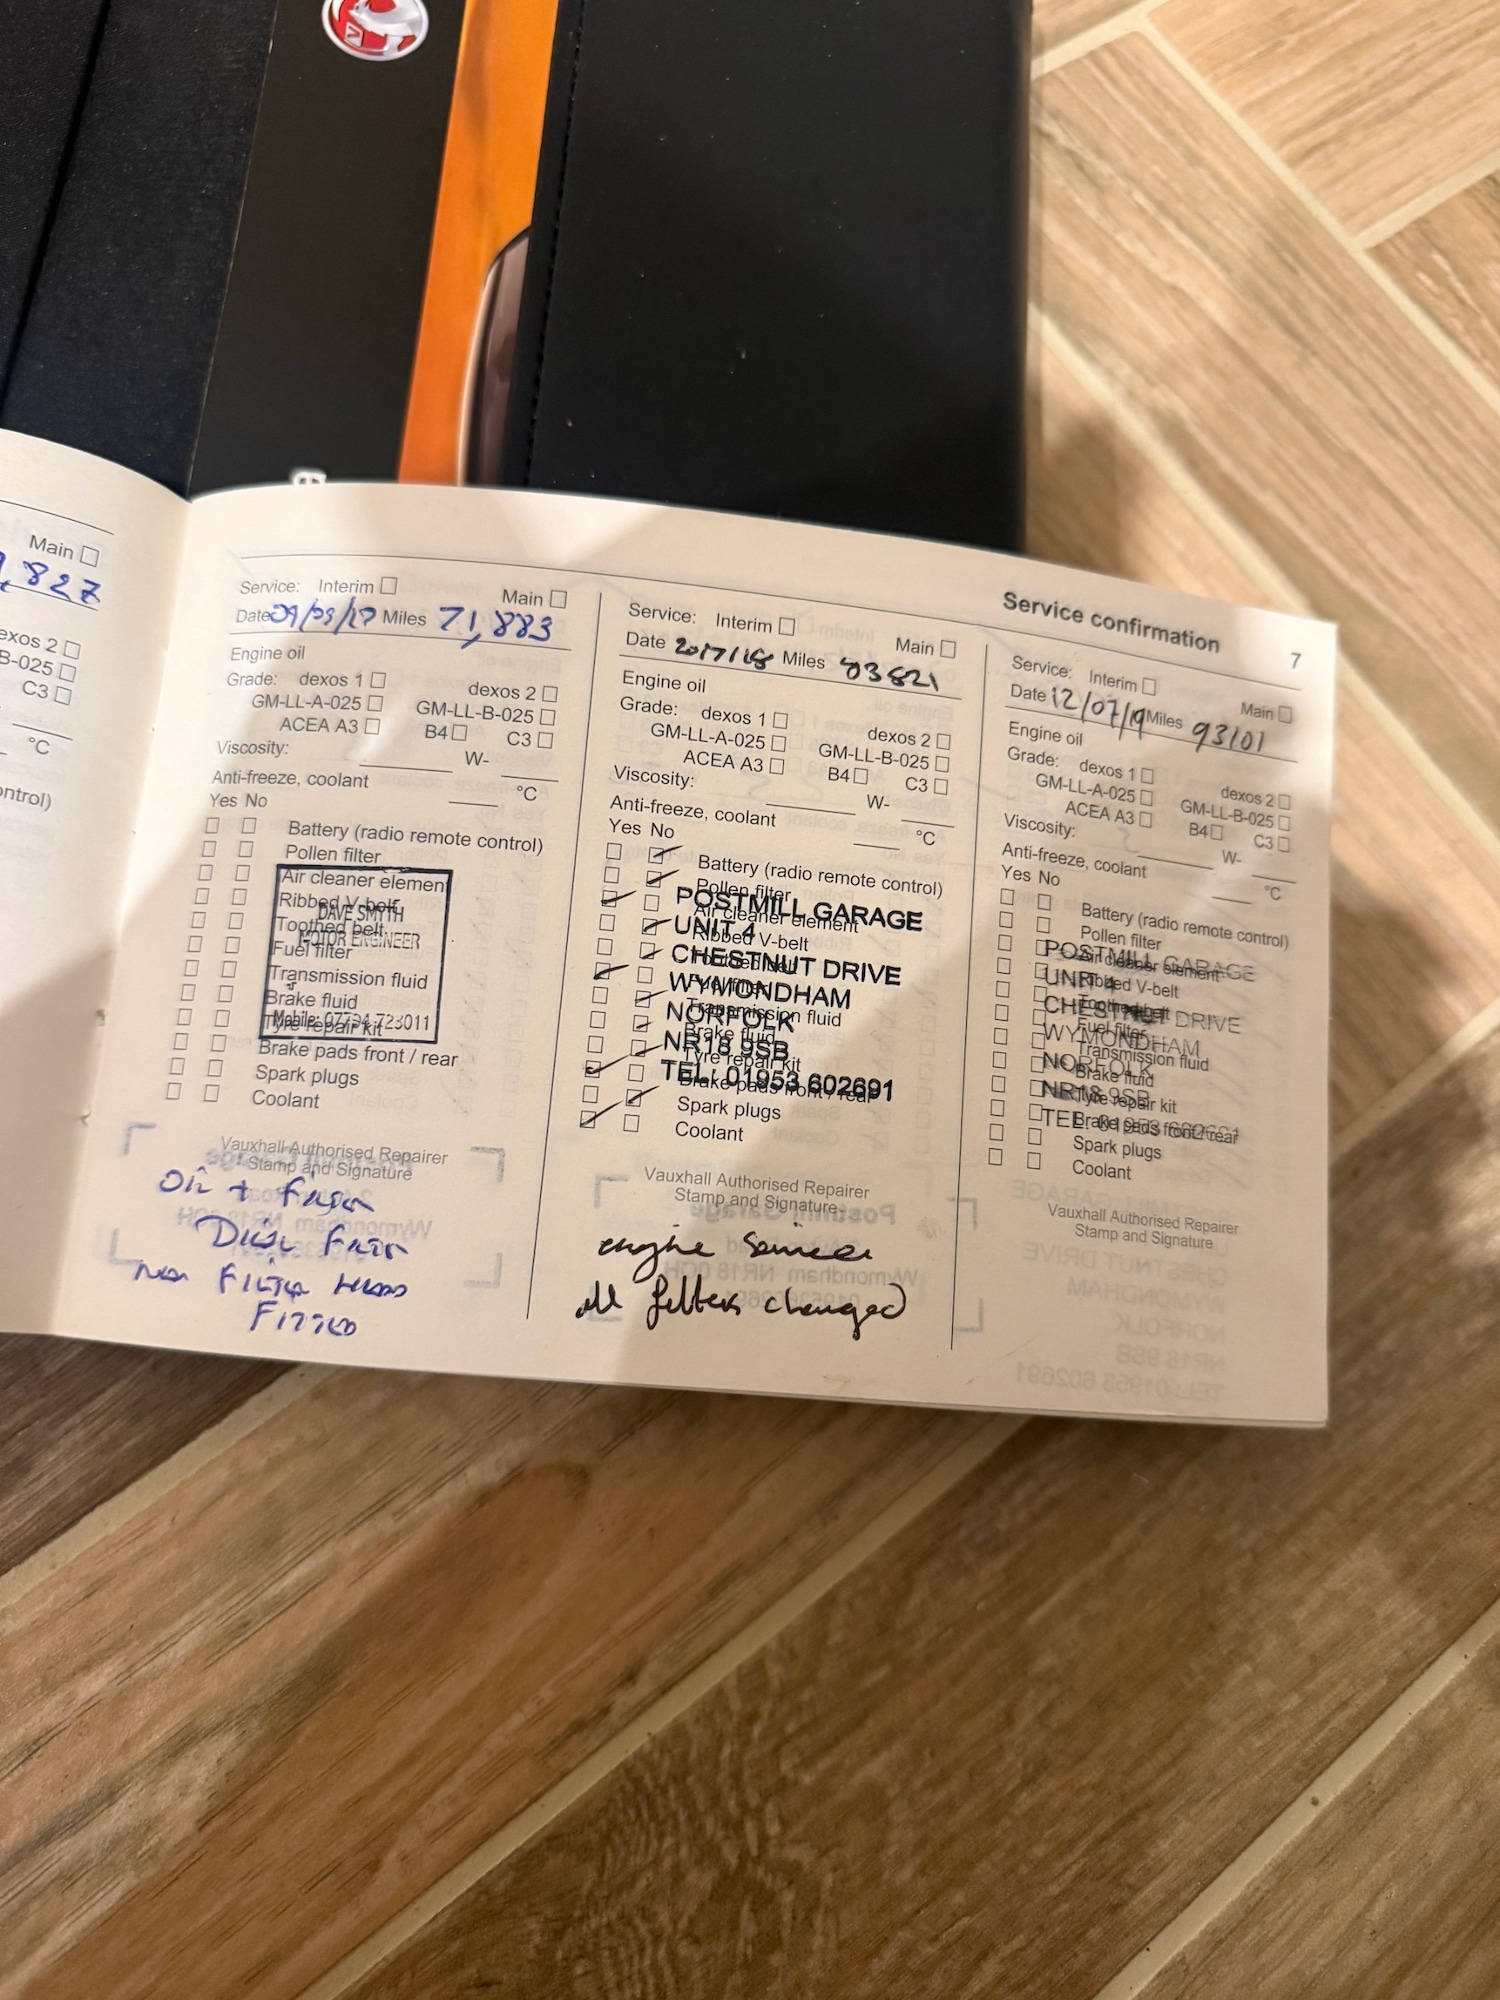 Main ☐
,827
exos 2 ☐
B-025 ☐
C3 ☐
°C
ontrol)
Service confirmation 7
Service: Interim ☐ Main ☐
Date 09/03/17 Miles 71,883
Engine oil
Grade: dexos 1 ☐ dexos 2 ☐
GM-LL-A-025 ☐ GM-LL-B-025 ☐
ACEA A3 ☐ B4 ☐ C3 ☐
Viscosity: W-
Anti-freeze, coolant °C
Yes No
Battery (radio remote control)
Pollen filter
Air cleaner element
Ribbed V-belt
DAVE SMYTH
Toothed belt
MOTOR ENGINEER
Fuel filter
Transmission fluid
Brake fluid
Mobile: 07794 723011
Tyre repair kit
Brake pads front / rear
Spark plugs
Coolant
Vauxhall Authorised Repairer
Stamp and Signature
Oil + Filter
Fitted
Service: Interim ☐ Main ☐
Date 20/7/18 Miles 83821
Engine oil
Grade: dexos 1 ☐ dexos 2 ☐
GM-LL-A-025 ☐ GM-LL-B-025 ☐
ACEA A3 ☐ B4 ☐ C3 ☐
Viscosity: W-
Anti-freeze, coolant °C
Yes No
Battery (radio remote control)
Pollen filter
POSTMILL GARAGE
Air cleaner element
UNIT 4
Ribbed V-belt
CHESTNUT DRIVE
Fuel filter
WYMONDHAM
Transmission fluid
NORFOLK
Brake fluid
NR18 9SB
Tyre repair kit
TEL: 01953 602691
Brake pads front / rear
Spark plugs
Coolant
Vauxhall Authorised Repairer
Stamp and Signature
engine service
all filters changed
Service: Interim ☐ Main ☐
Date 12/07/19 Miles 93101
Engine oil
Grade: dexos 1 ☐ dexos 2 ☐
GM-LL-A-025 ☐ GM-LL-B-025 ☐
ACEA A3 ☐ B4 ☐ C3 ☐
Viscosity: W-
Anti-freeze, coolant °C
Yes No
Battery (radio remote control)
Pollen filter
POSTMILL GARAGE
Air cleaner element
UNIT 4
Ribbed V-belt
Toothed belt
CHESTNUT DRIVE
Fuel filter
WYMONDHAM
Transmission fluid
NORFOLK
Brake fluid
NR18 9SB
Tyre repair kit
TEL: 01953 602691
Brake pads front / rear
Spark plugs
Coolant
Vauxhall Authorised Repairer
Stamp and Signature